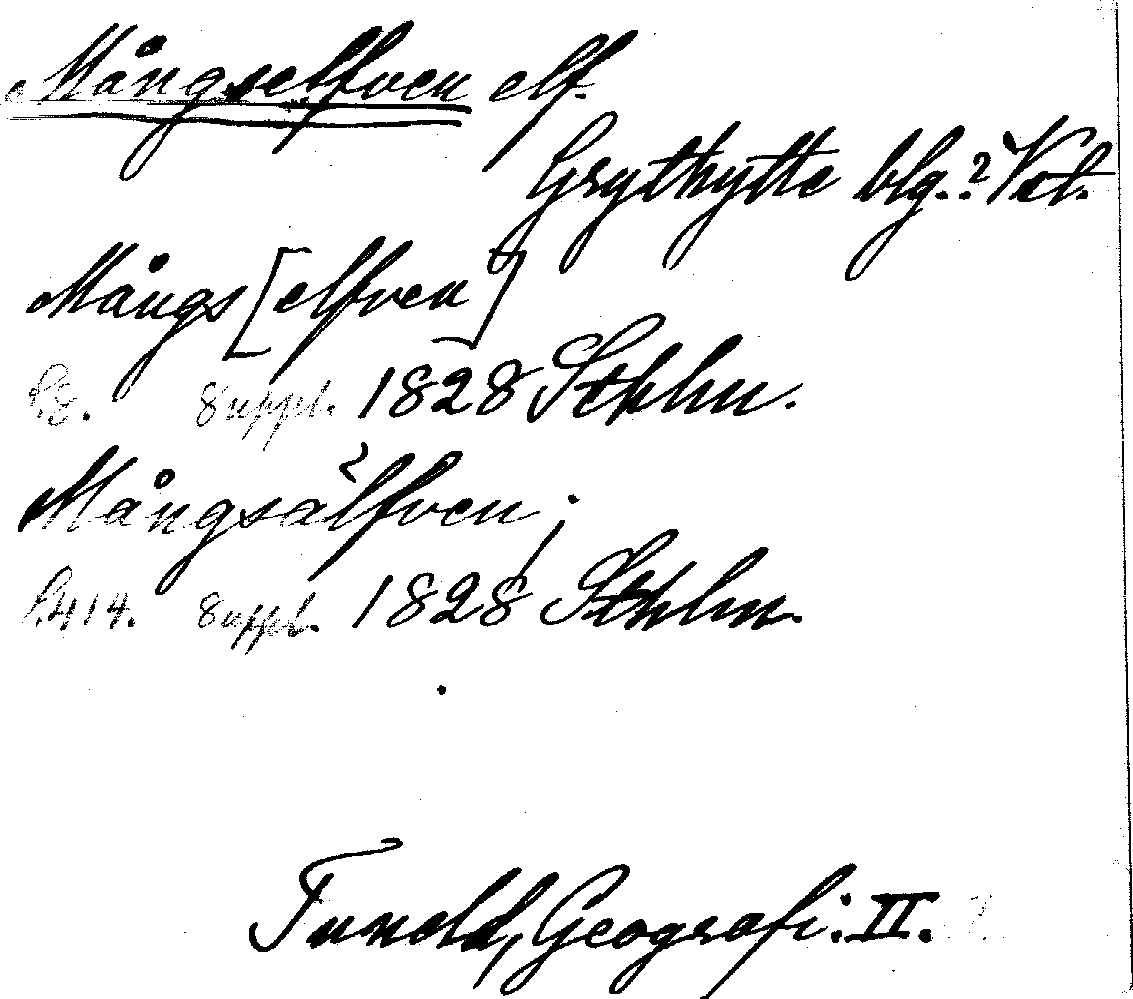 Mångselfven elf.
Grythytte blg.? Vstl.
Mångs[elfven]
S. 8. Suppl. 1828 Sthlm.
Mångsälfven;
S. 414. Suppl. 1828 Sthlm.
Tuneld, Geografi. II.